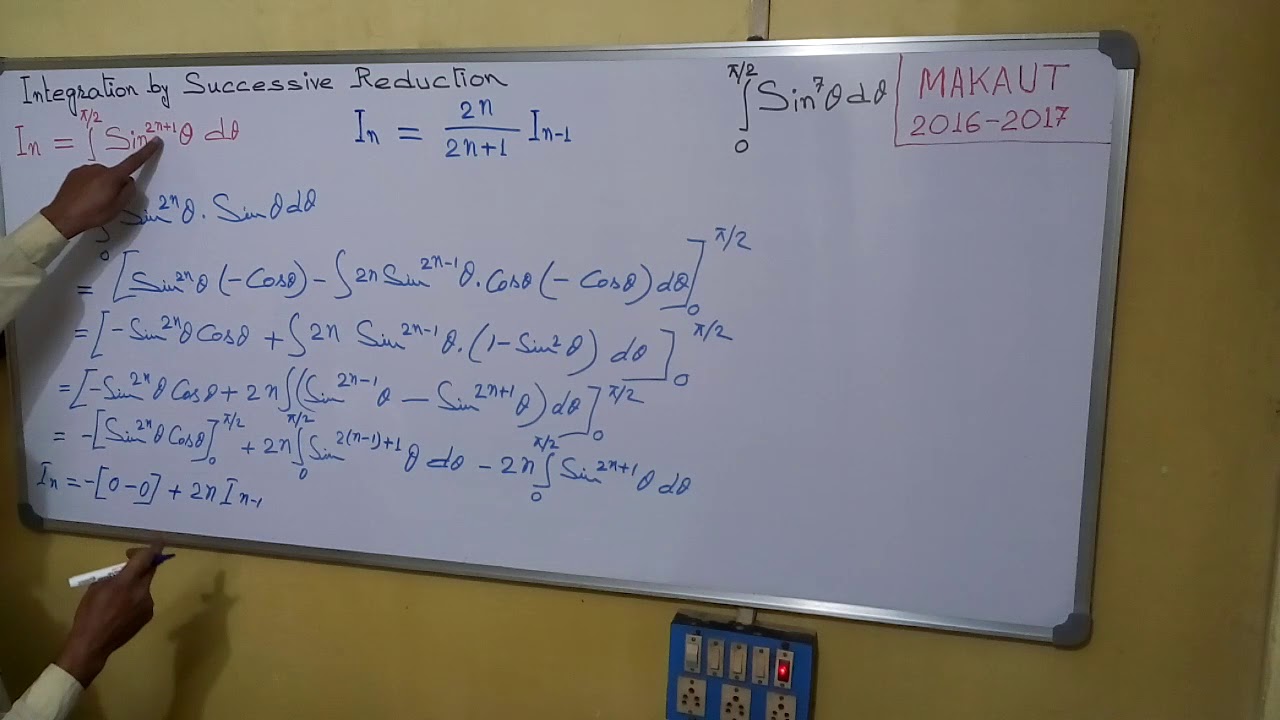 Integration by Successive Reduction
Iₙ = ∫₀^{π/2} Sin^{2n+1}θ dθ
Iₙ = 2n/(2n+1) Iₙ₋₁
∫₀^{π/2} Sin⁷θ dθ
MAKAUT
2016-2017
∫₀ Sin^{2n}θ. Sinθdθ
= [Sin^{2n}θ (-Cosθ) - ∫2n Sin^{2n-1}θ. Cosθ (-Cosθ) dθ]₀^{π/2}
= [-Sin^{2n}θ Cosθ + ∫2n Sin^{2n-1}θ. (1-Sin²θ) dθ]₀^{π/2}
= [-Sin^{2n}θ Cosθ + 2n∫(Sin^{2n-1}θ - Sin^{2n+1}θ) dθ]₀^{π/2}
= -[Sin^{2n}θ Cosθ]₀^{π/2} + 2n∫₀^{π/2} Sin^{2(n-1)+1}θ dθ - 2n∫₀^{π/2} Sin^{2n+1}θ dθ
Iₙ = -[0-0] + 2n Iₙ₋₁